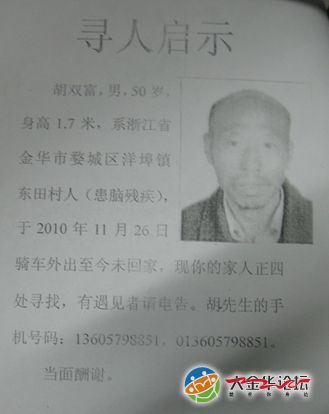 寻人启示
胡双富，男，50岁，
身高1.7米，系浙江省
金华市婺城区洋埠镇
东田村人（患脑残疾），
于2010年11月26日
骑车外出至今未回家，现你的家人正四
处寻找，有遇见者请电告。胡先生的手
机号码：13605798851，013605798851。
当面酬谢。
大金华论坛